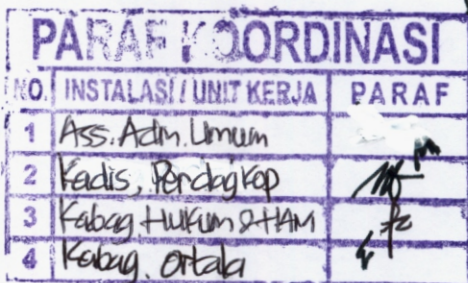 PARAF KOORDINASI
NO. INSTALASI / UNIT KERJA PARAF
1 Ass. Adm. Umum
2 Kadis, Perdagkop
3 Kabag Hukum & HAM
4 Kabag. Ortala